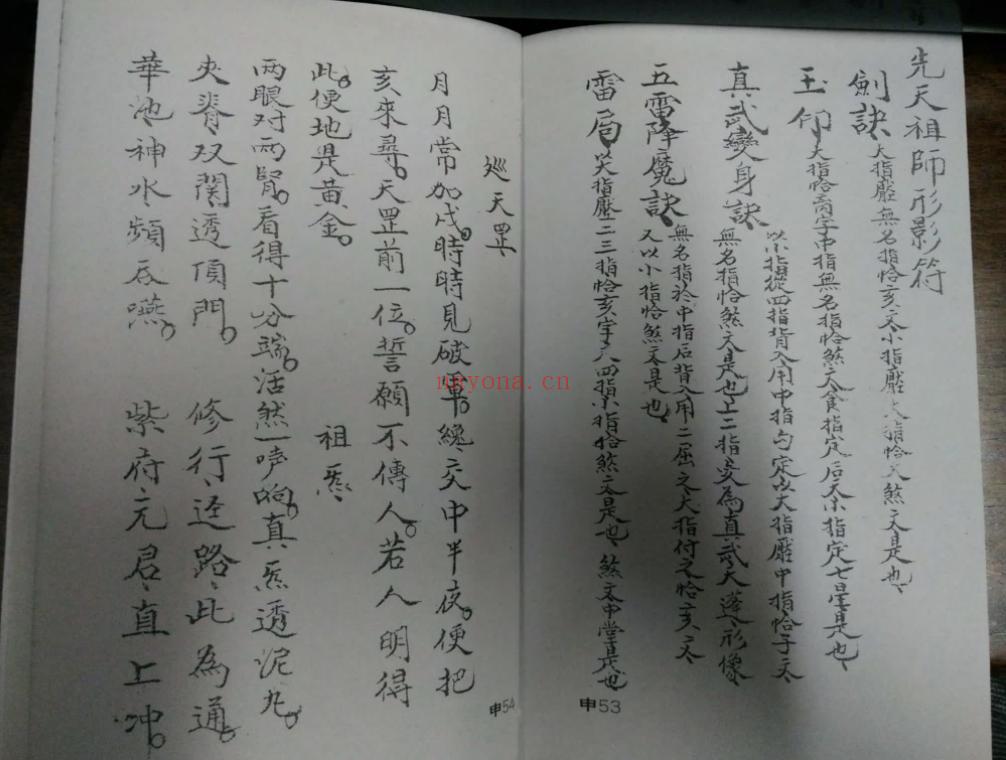 先天祖師形影符
劍訣 大指壓無名指恰亥文小指壓大指恰煞文是也
玉印 大指恰商字中指無名指恰煞文食指定后夭小指定七星是也
以小指從四指背入用中指勾定以大指壓中指恰子文
真武變身訣 無名指恰煞文是也上二指交為真武大蓬形像
五雷降魔訣 無名指於中指后背入用二屈之大指付之恰亥文
又以小指恰煞文是也
雷局 大指壓二三指恰亥字 四指小指恰煞文是也煞文中堂是也
申53
巡天罡
月月常加戌。時時見破軍。纔交中半夜。便把
亥來尋。天罡前一位。誓願不傳人。若人明得
此。便地是黃金。 祖炁
兩眼对兩腎。看得十分端。活然一声响。真炁透泥丸。
夾脊双関透頂門。 修行逕路此為通。
華池神水頻吞嚥。 紫府元君直上冲。
申54
nayona.cn